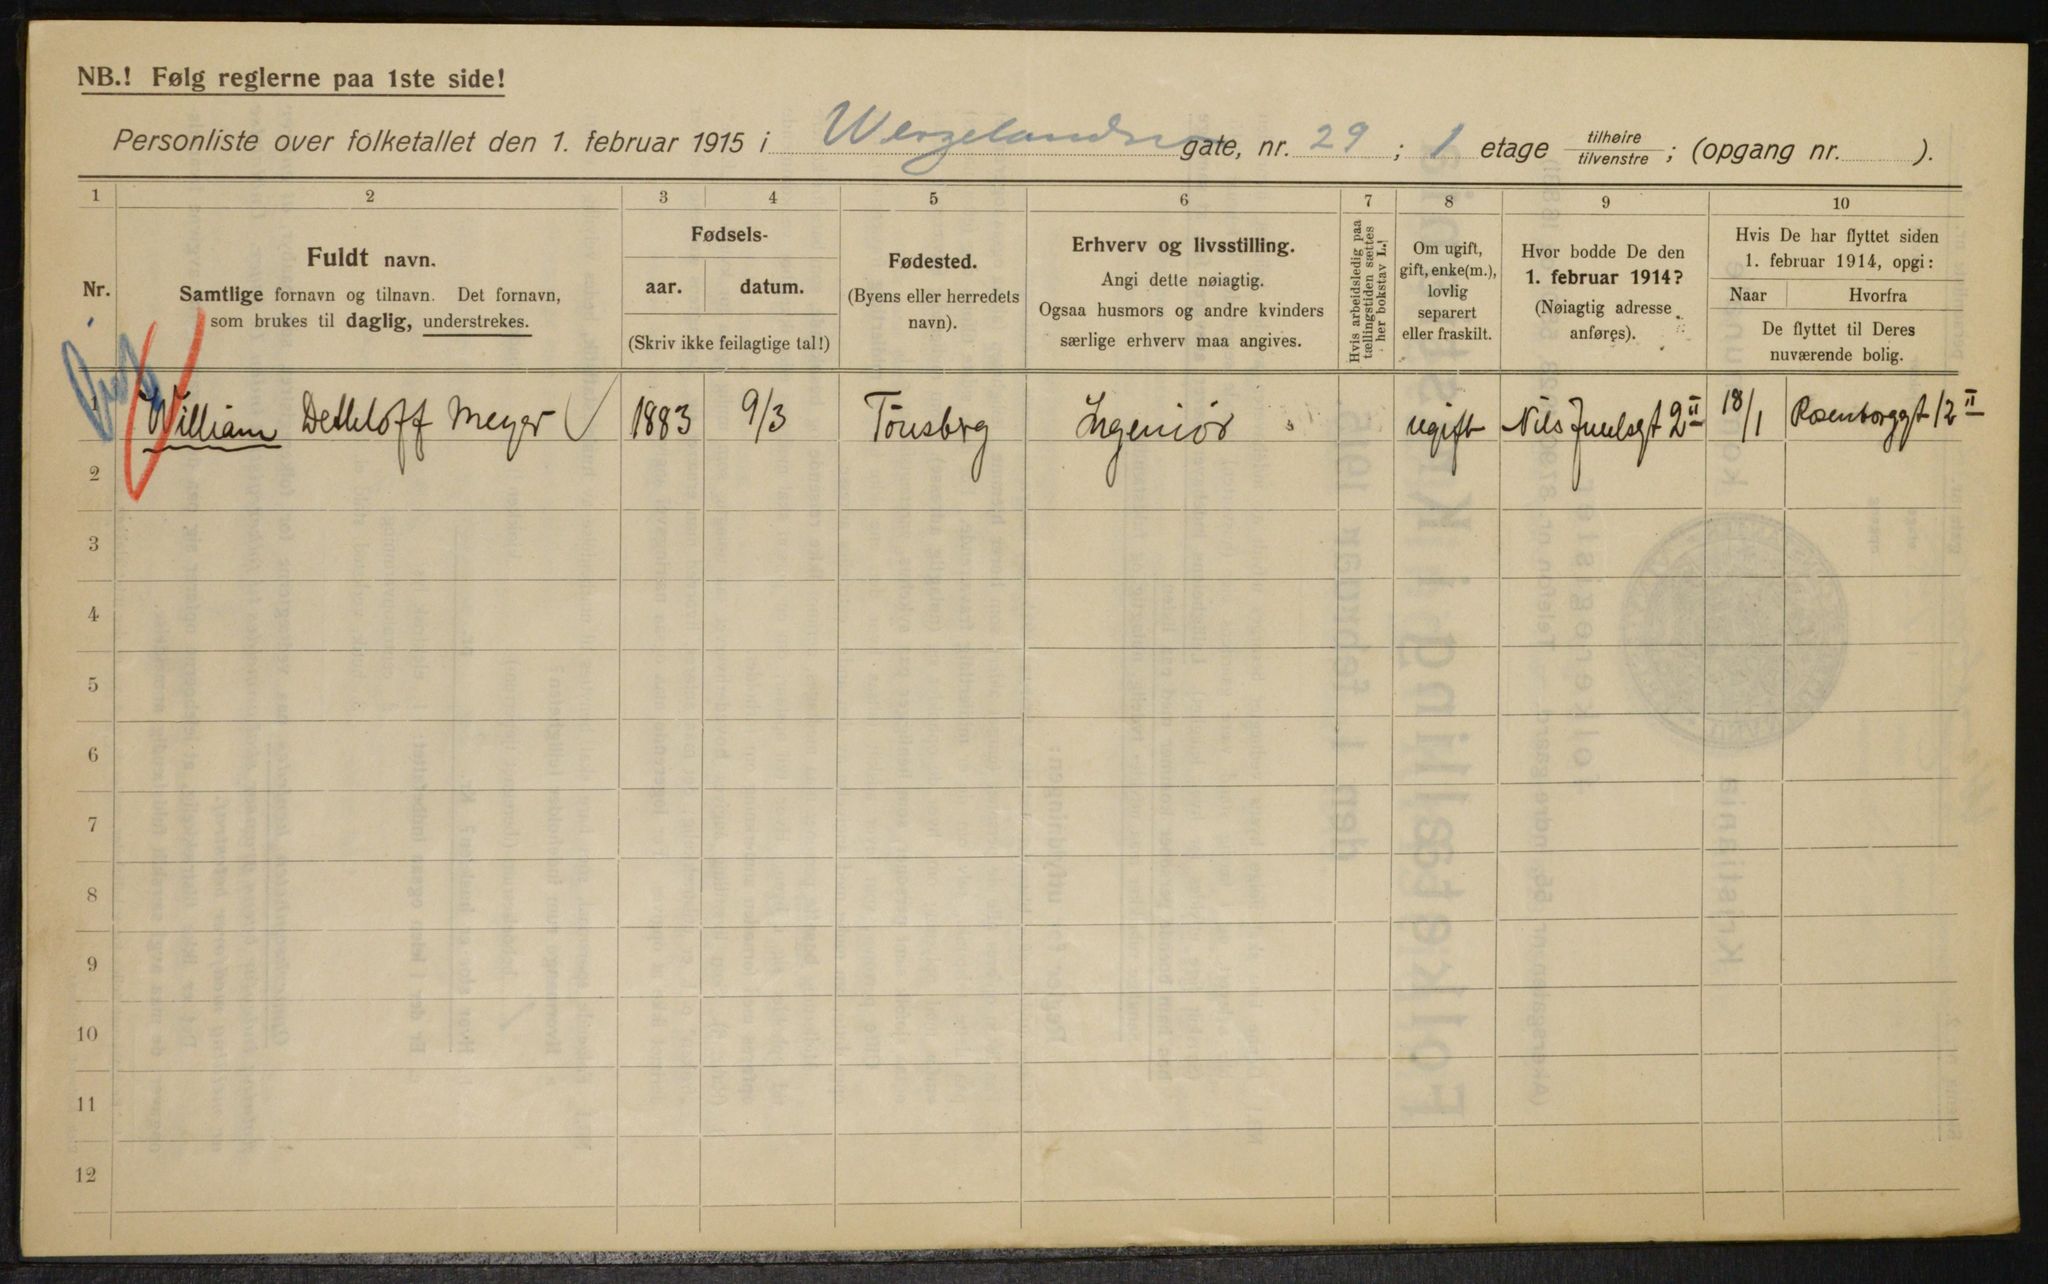 NB.! Følg reglerne paa 1ste side!
Personliste over folketallet den 1. februar 1915 i Wergelands gate, nr. 29 ; 1 etage tilhøire/tilvenstre ; (opgang nr. ).
1 2 3 4 5 6 7 8 9 10
Nr.
Fuldt navn.
Samtlige fornavn og tilnavn. Det fornavn,
som brukes til daglig, understrekes.
Fødsels-
aar. datum.
(Skriv ikke feilagtige tal!)
Fødested.
(Byens eller herredets
navn).
Erhverv og livsstilling.
Angi dette nøiagtig.
Ogsaa husmors og andre kvinders
særlige erhverv maa angives.
Hvis arbeidsledig paa
tællingstiden sættes
her bokstav L.!
Om ugift,
gift, enke(m.),
lovlig
separert
eller fraskilt.
Hvor bodde De den
1. februar 1914?
(Nøiagtig adresse
anføres).
Hvis De har flyttet siden
1. februar 1914, opgi:
Naar Hvorfra
De flyttet til Deres
nuværende bolig.
1 William Dethloff Meyer 1883 9/3 Tönsberg Ingeniör ugift Nils Juulsgt 2 II 18/1 Rosenborggt 12 II
2
3
4
5
6
7
8
9
10
11
12